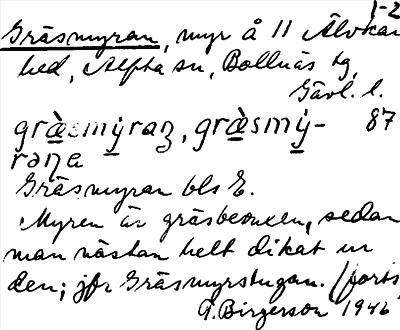 1-2
Gräsmyran, myr å 11 Älvkar
hed, Alfta sn, Bollnäs tg,
Gävl. l.
græ̀smy̆ran, græ̀smy̆- 87
rəṇa
Gräsmyran bls E.
Myren är gräsbeväxen, sedan
man nästan helt dikat ur
den; jfr Gräsmyrstugan. (forts
G. Birgerson 1946